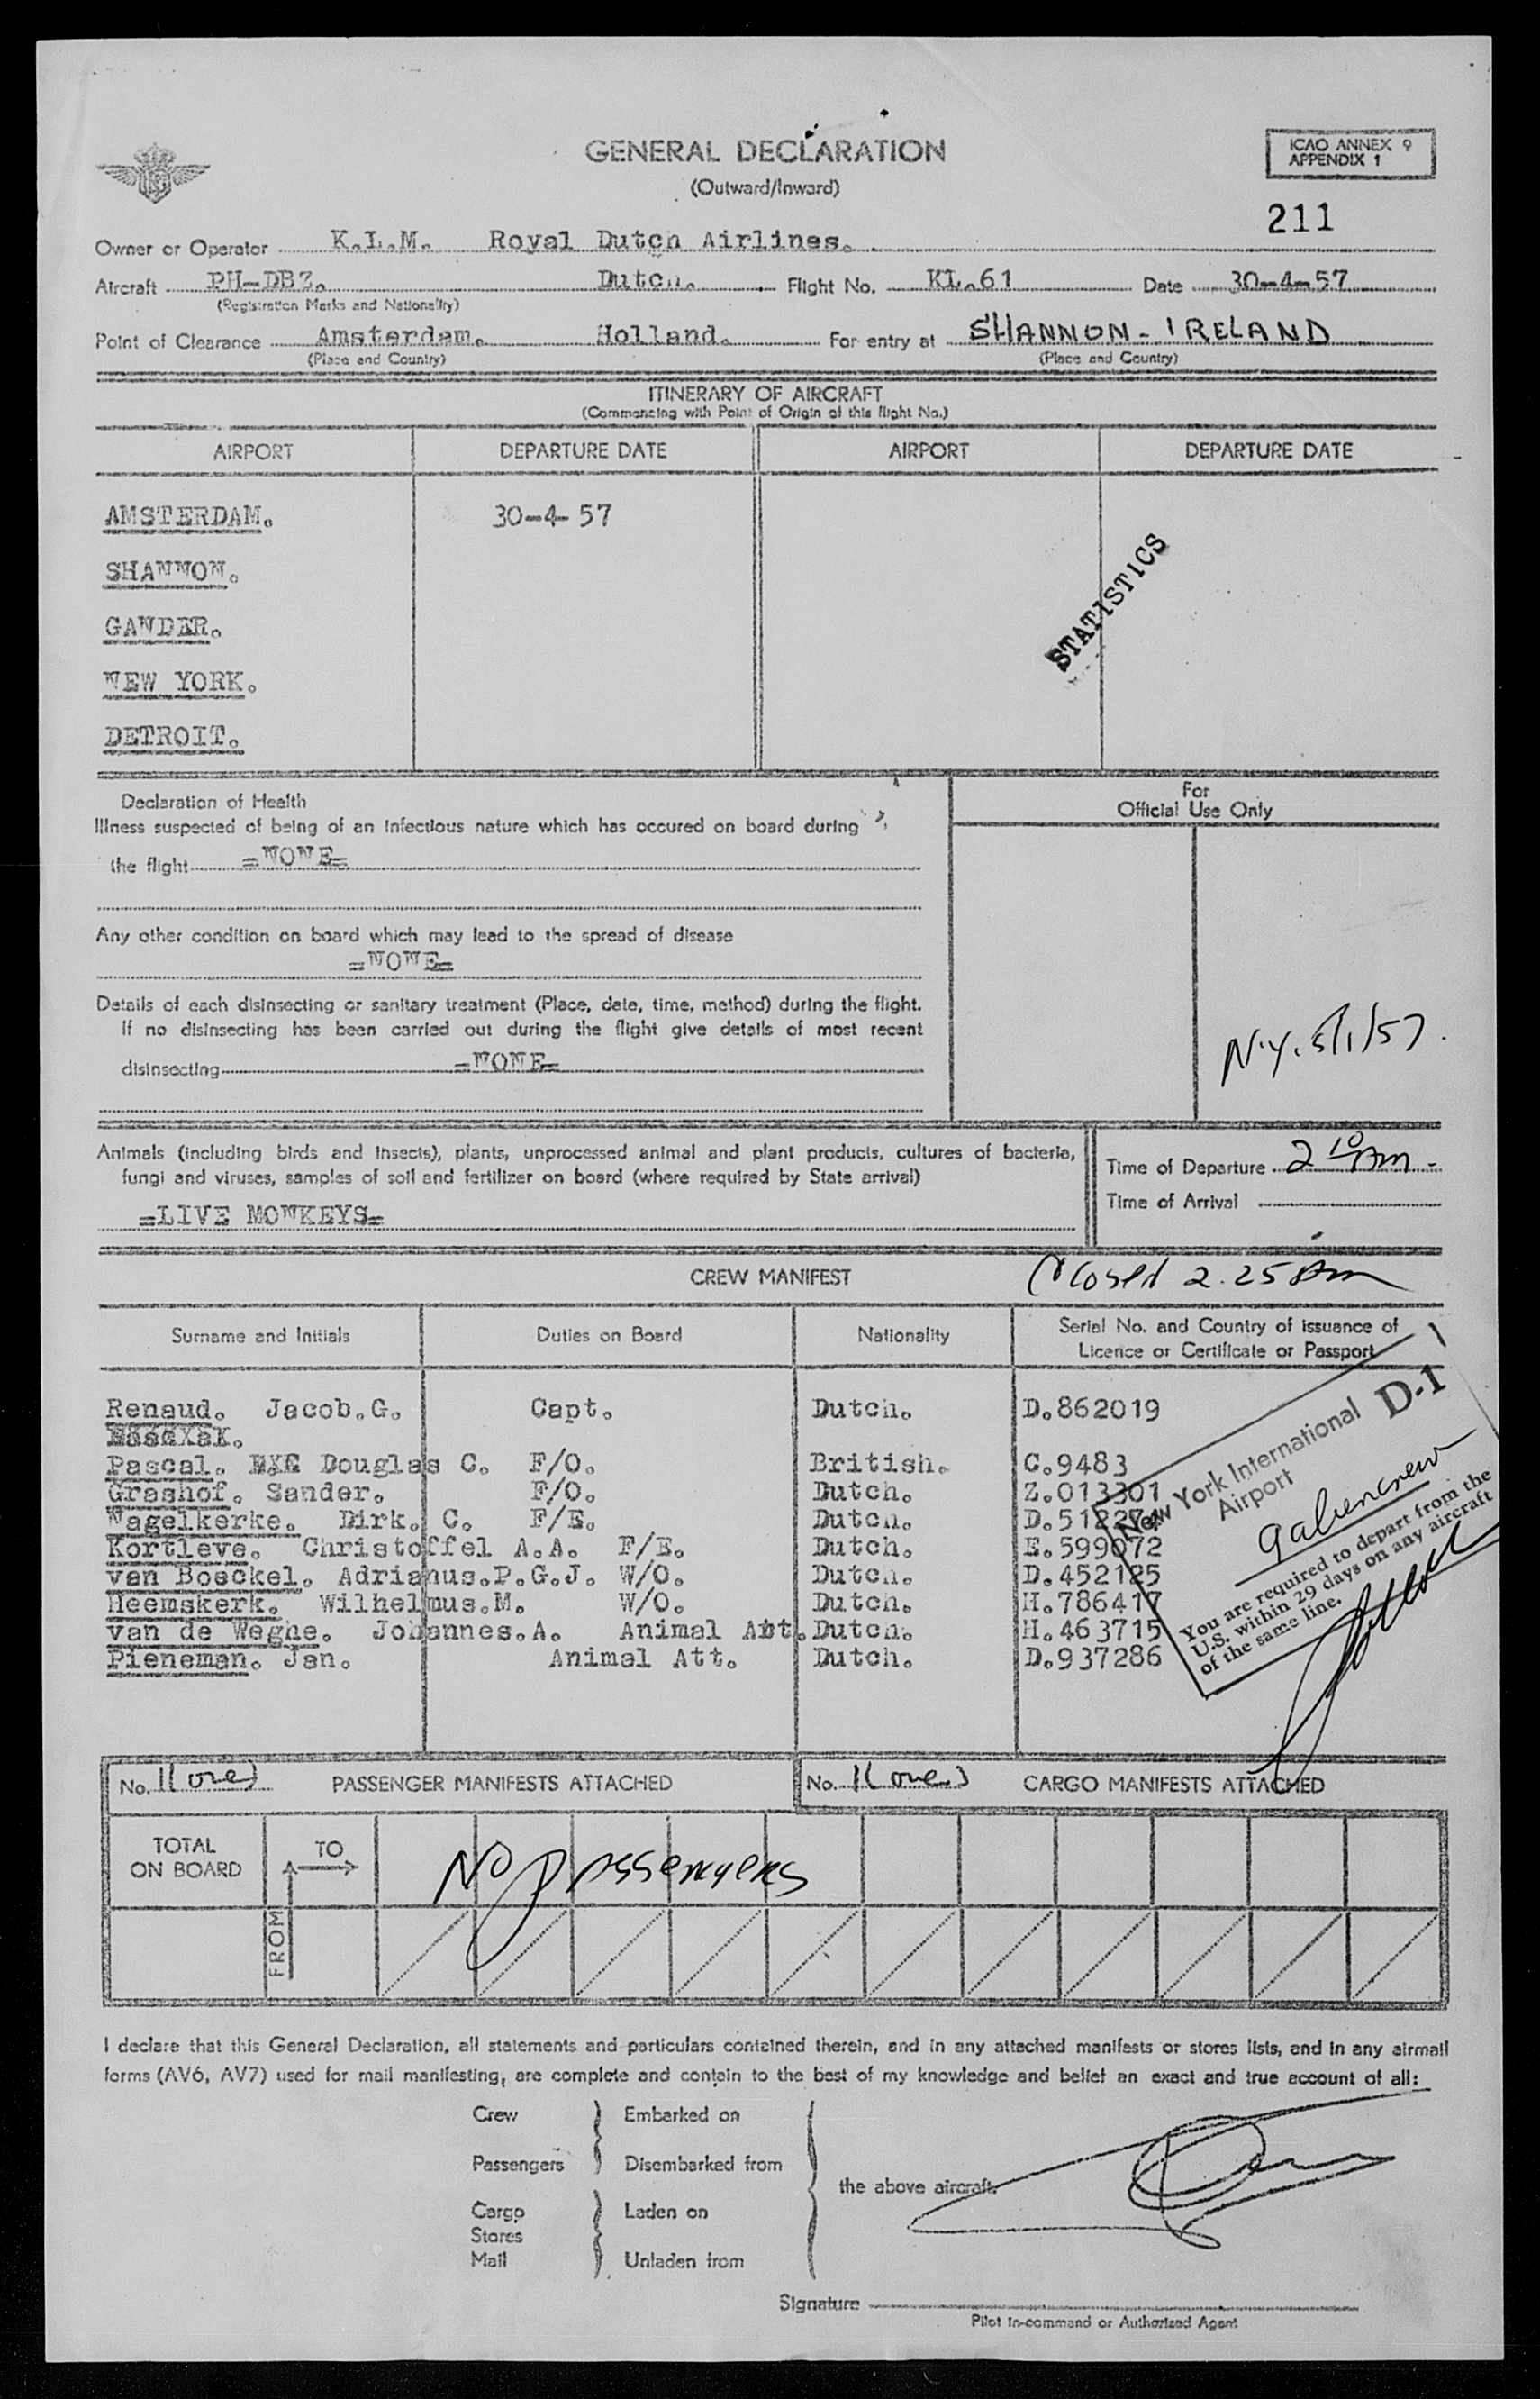 GENERAL DECLARATION
(Outward/Inward)
ICAO ANNEX 9
APPENDIX 1
211
Owner or Operator K.L.M. Royal Dutch Airlines.
Aircraft PH-DBZ. Dutch. Flight No. KL.61 Date 30-4-57
(Registration Marks and Nationality)
Point of Clearance Amsterdam. Holland. For entry at SHANNON - IRELAND
(Place and Country) (Place and Country)
ITINERARY OF AIRCRAFT
(Commencing with Point of Origin of this flight No.)
AIRPORT DEPARTURE DATE AIRPORT DEPARTURE DATE
AMSTERDAM. 30-4-57
SHANNON.
GANDER.
NEW YORK.
DETROIT.
STATISTICS
Declaration of Health
Illness suspected of being of an infectious nature which has occured on board during
the flight =NONE=
Any other condition on board which may lead to the spread of disease
=NONE=
Details of each disinsecting or sanitary treatment (Place, date, time, method) during the flight.
If no disinsecting has been carried out during the flight give details of most recent
disinsecting =NONE=
For
Official Use Only
N.Y. 5/1/57.
Animals (including birds and insects), plants, unprocessed animal and plant products, cultures of bacteria,
fungi and viruses, samples of soil and fertilizer on board (where required by State arrival)
=LIVE MONKEYS=
Time of Departure 2 10 Am -
Time of Arrival
CREW MANIFEST
Closed 2.25 Am
Surname and Initials Duties on Board Nationality Serial No. and Country of issuance of
Licence or Certificate or Passport
Renaud. Jacob.G. Capt. Dutch. D.862019
Pascal. Douglas C. F/O. British. C.9483
Grashof. Sander. F/O. Dutch. Z.013301
Wagelkerke. Dirk. C. F/E. Dutch.
Kortleve. Christoffel A.A. F/E. Dutch. E.599072
van Boeckel. Adrianus.P.G.J. W/O. Dutch. D.452125
Heemskerk. Wilhelmus.M. W/O. Dutch. H.786417
van de Weghe. Johannes.A. Animal Att. Dutch. H.463715
Pieneman. Jan. Animal Att. Dutch. D.937286
D-1
New York International
Airport
You are required to depart from the
U.S. within 29 days on any aircraft
of the same line.
No. 1(one) PASSENGER MANIFESTS ATTACHED No. 1(one) CARGO MANIFESTS ATTACHED
TOTAL
ON BOARD
TO
FROM
No passengers
I declare that this General Declaration, all statements and particulars contained therein, and in any attached manifests or stores lists, and in any airmail
forms (AV6, AV7) used for mail manifesting, are complete and contain to the best of my knowledge and belief an exact and true account of all:
Crew Embarked on
Passengers Disembarked from
the above aircraft.
Cargo Laden on
Stores
Mail Unladen from
Signature
Pilot in-command or Authorized Agent